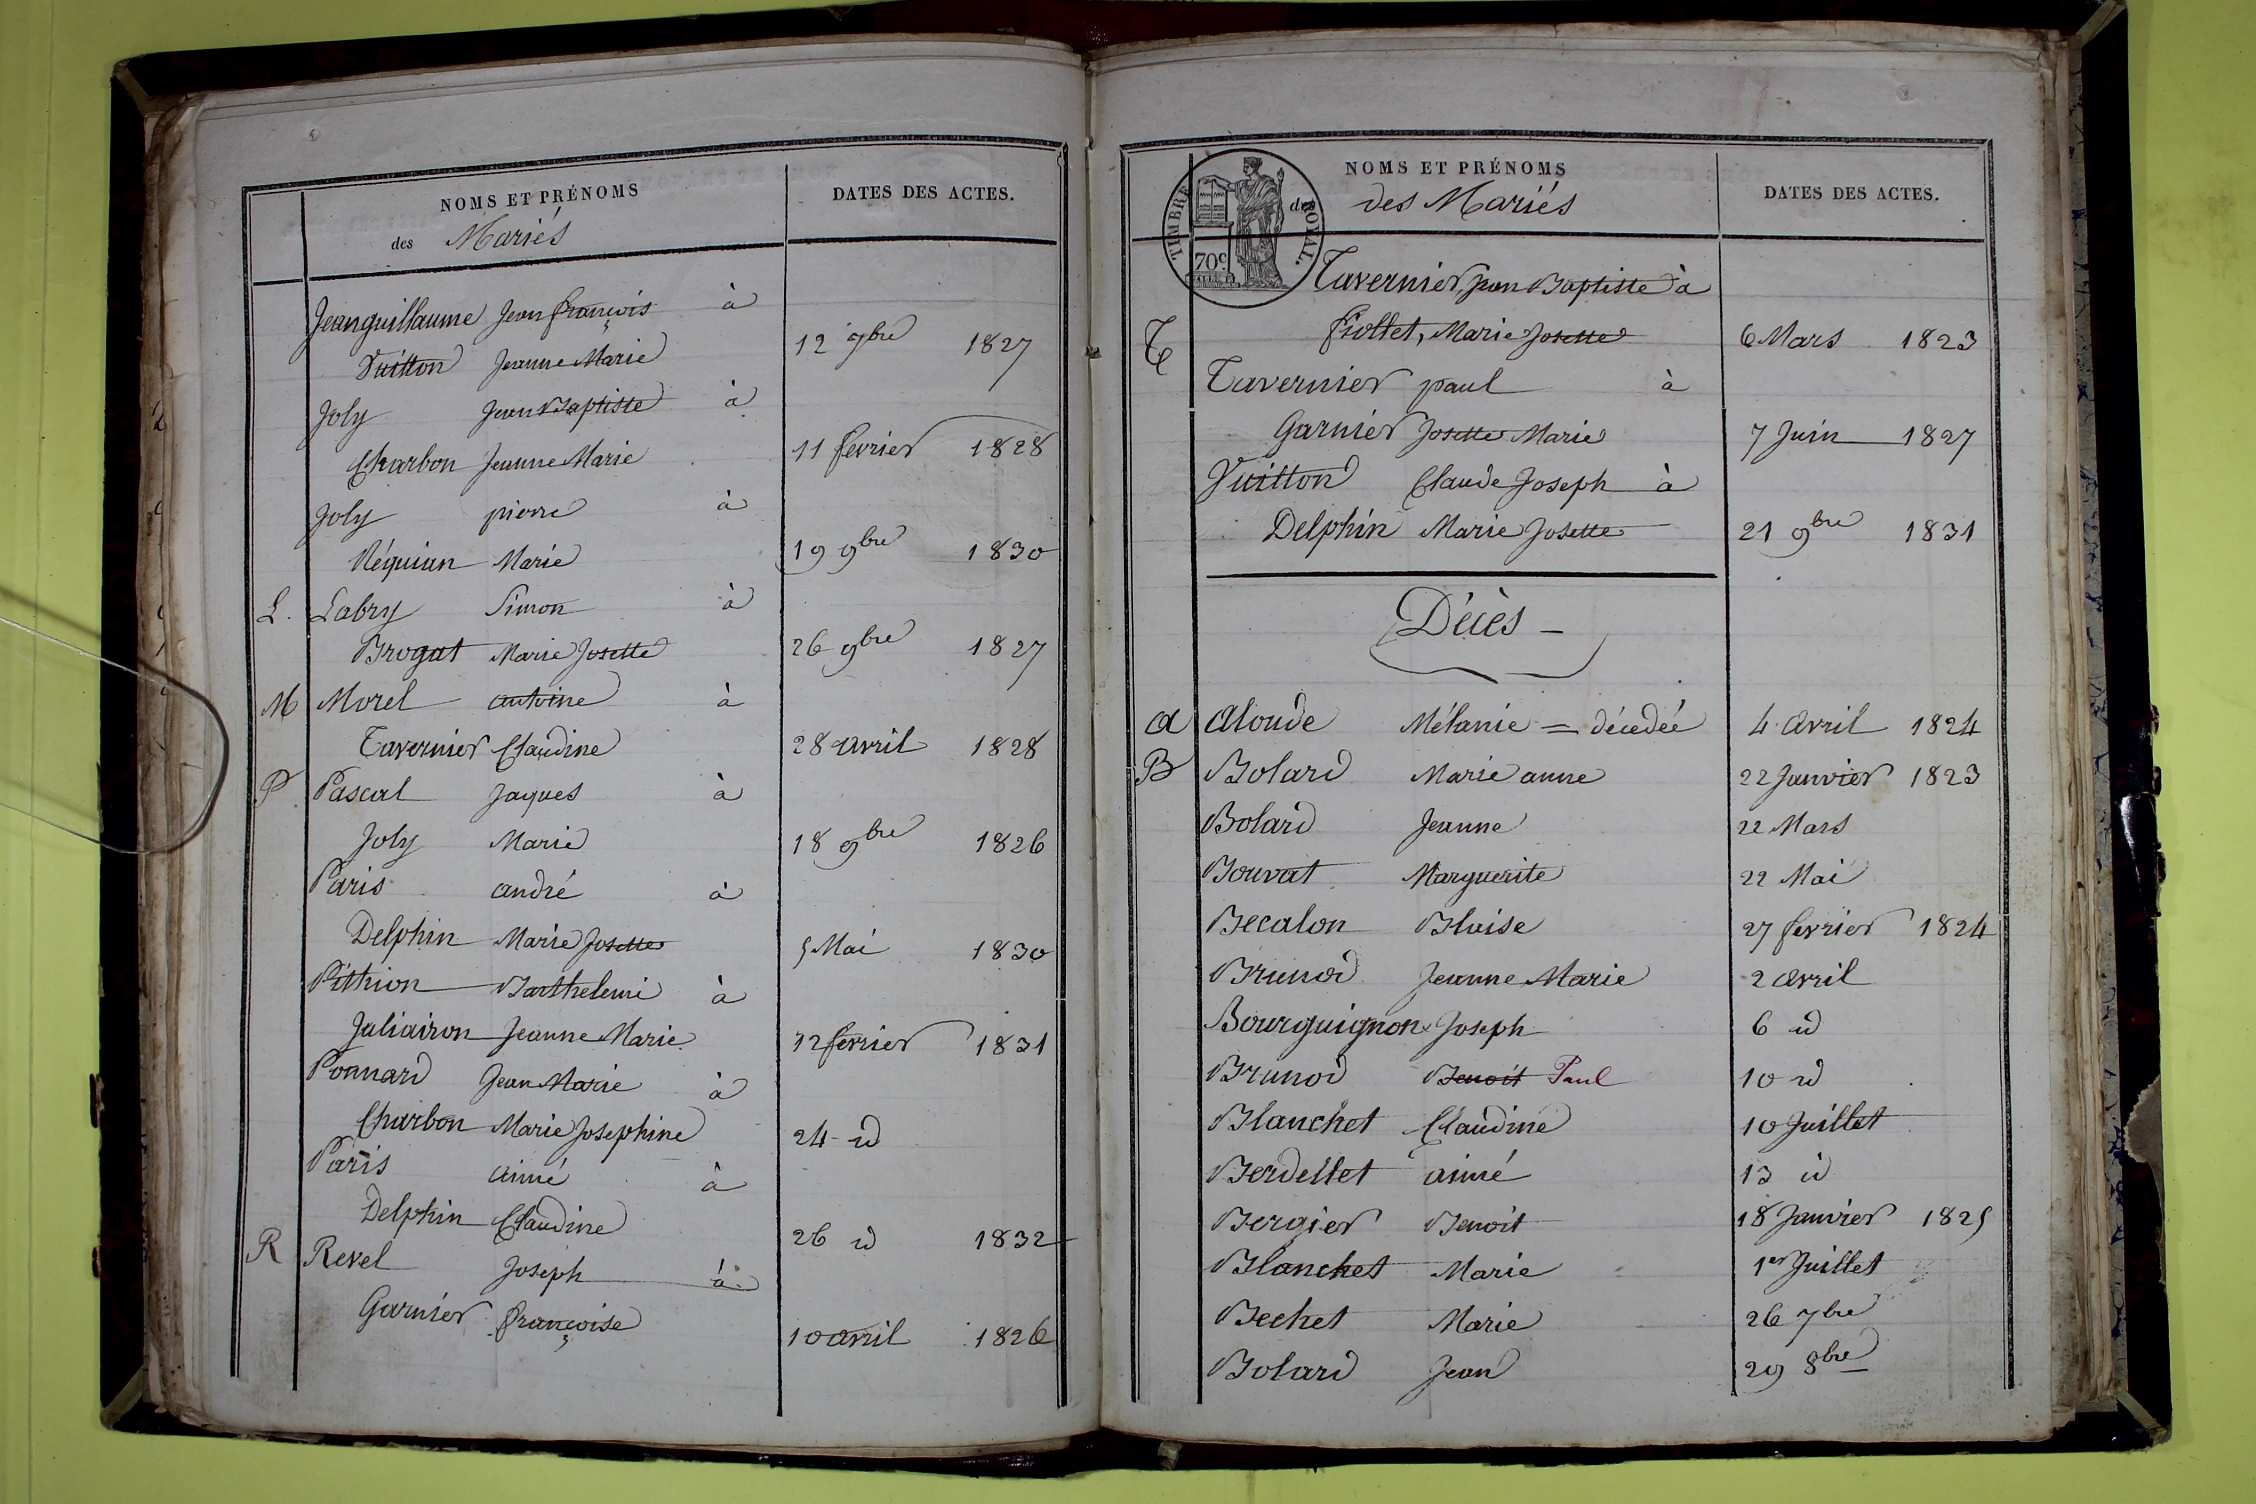 NOMS ET PRÉNOMS
DATES DES ACTES.
des Mariés
Jeanguillaume Jean françois à
Vuitton Jeanne Marie 12 9bre 1827
Joly Jean Baptiste à
Charbon Jeanne Marie 11 fevrier 1828
Joly pierre à
Réquian Marie 19 9bre 1830
L. Labry Simon à
Brogat Marie Josette 26 9bre 1827
M Morel antoine à
Tavernier Claudine 28 avril 1828
P Pascal Jaques à
Joly Marie 18 9bre 1826
Paris andré à
Delphin Marie Josette 5 Mai 1830
Pithion Barthelemi à
Juliairon Jeanne Marie 12 fevrier 1831
Ponnard Jean Marie à
Charbon Marie Josephine 24 id
Paris aimé à
Delphin Claudine 26 id 1832
R Revel Joseph à
Garnier françoise 10 avril 1826
NOMS ET PRÉNOMS
DATES DES ACTES.
des des Mariés
TIMBRE ROYAL.
70c
Tavernier, Jean Baptiste à
T fiollet, Marie Josette 6 Mars 1823
Tavernier paul à
Garnier Josette Marie 7 Juin 1827
Vuitton Claude Joseph à
Delphin Marie Josette 21 9bre 1831
Décès
a aloude Mélanie = décedée 4 avril 1824
B Bolard Marie anne 22 Janvier 1823
Bolard Jeanne 22 Mars
Bouvat Marguerite 22 Mai
Becalon Blaise 27 fevrier 1824
Brunod Jeanne Marie 2 avril
Bourguignon Joseph 6 id
Brunod Benoit Paul 10 id
Blanchet Claudine 10 Juillet
Berdellet aimé 13 id
Bergier Benoit 18 Janvier 1825
Blanchet Marie 1er Juillet
Bechet Marie 26 7bre
Bolard Jean 29 8bre